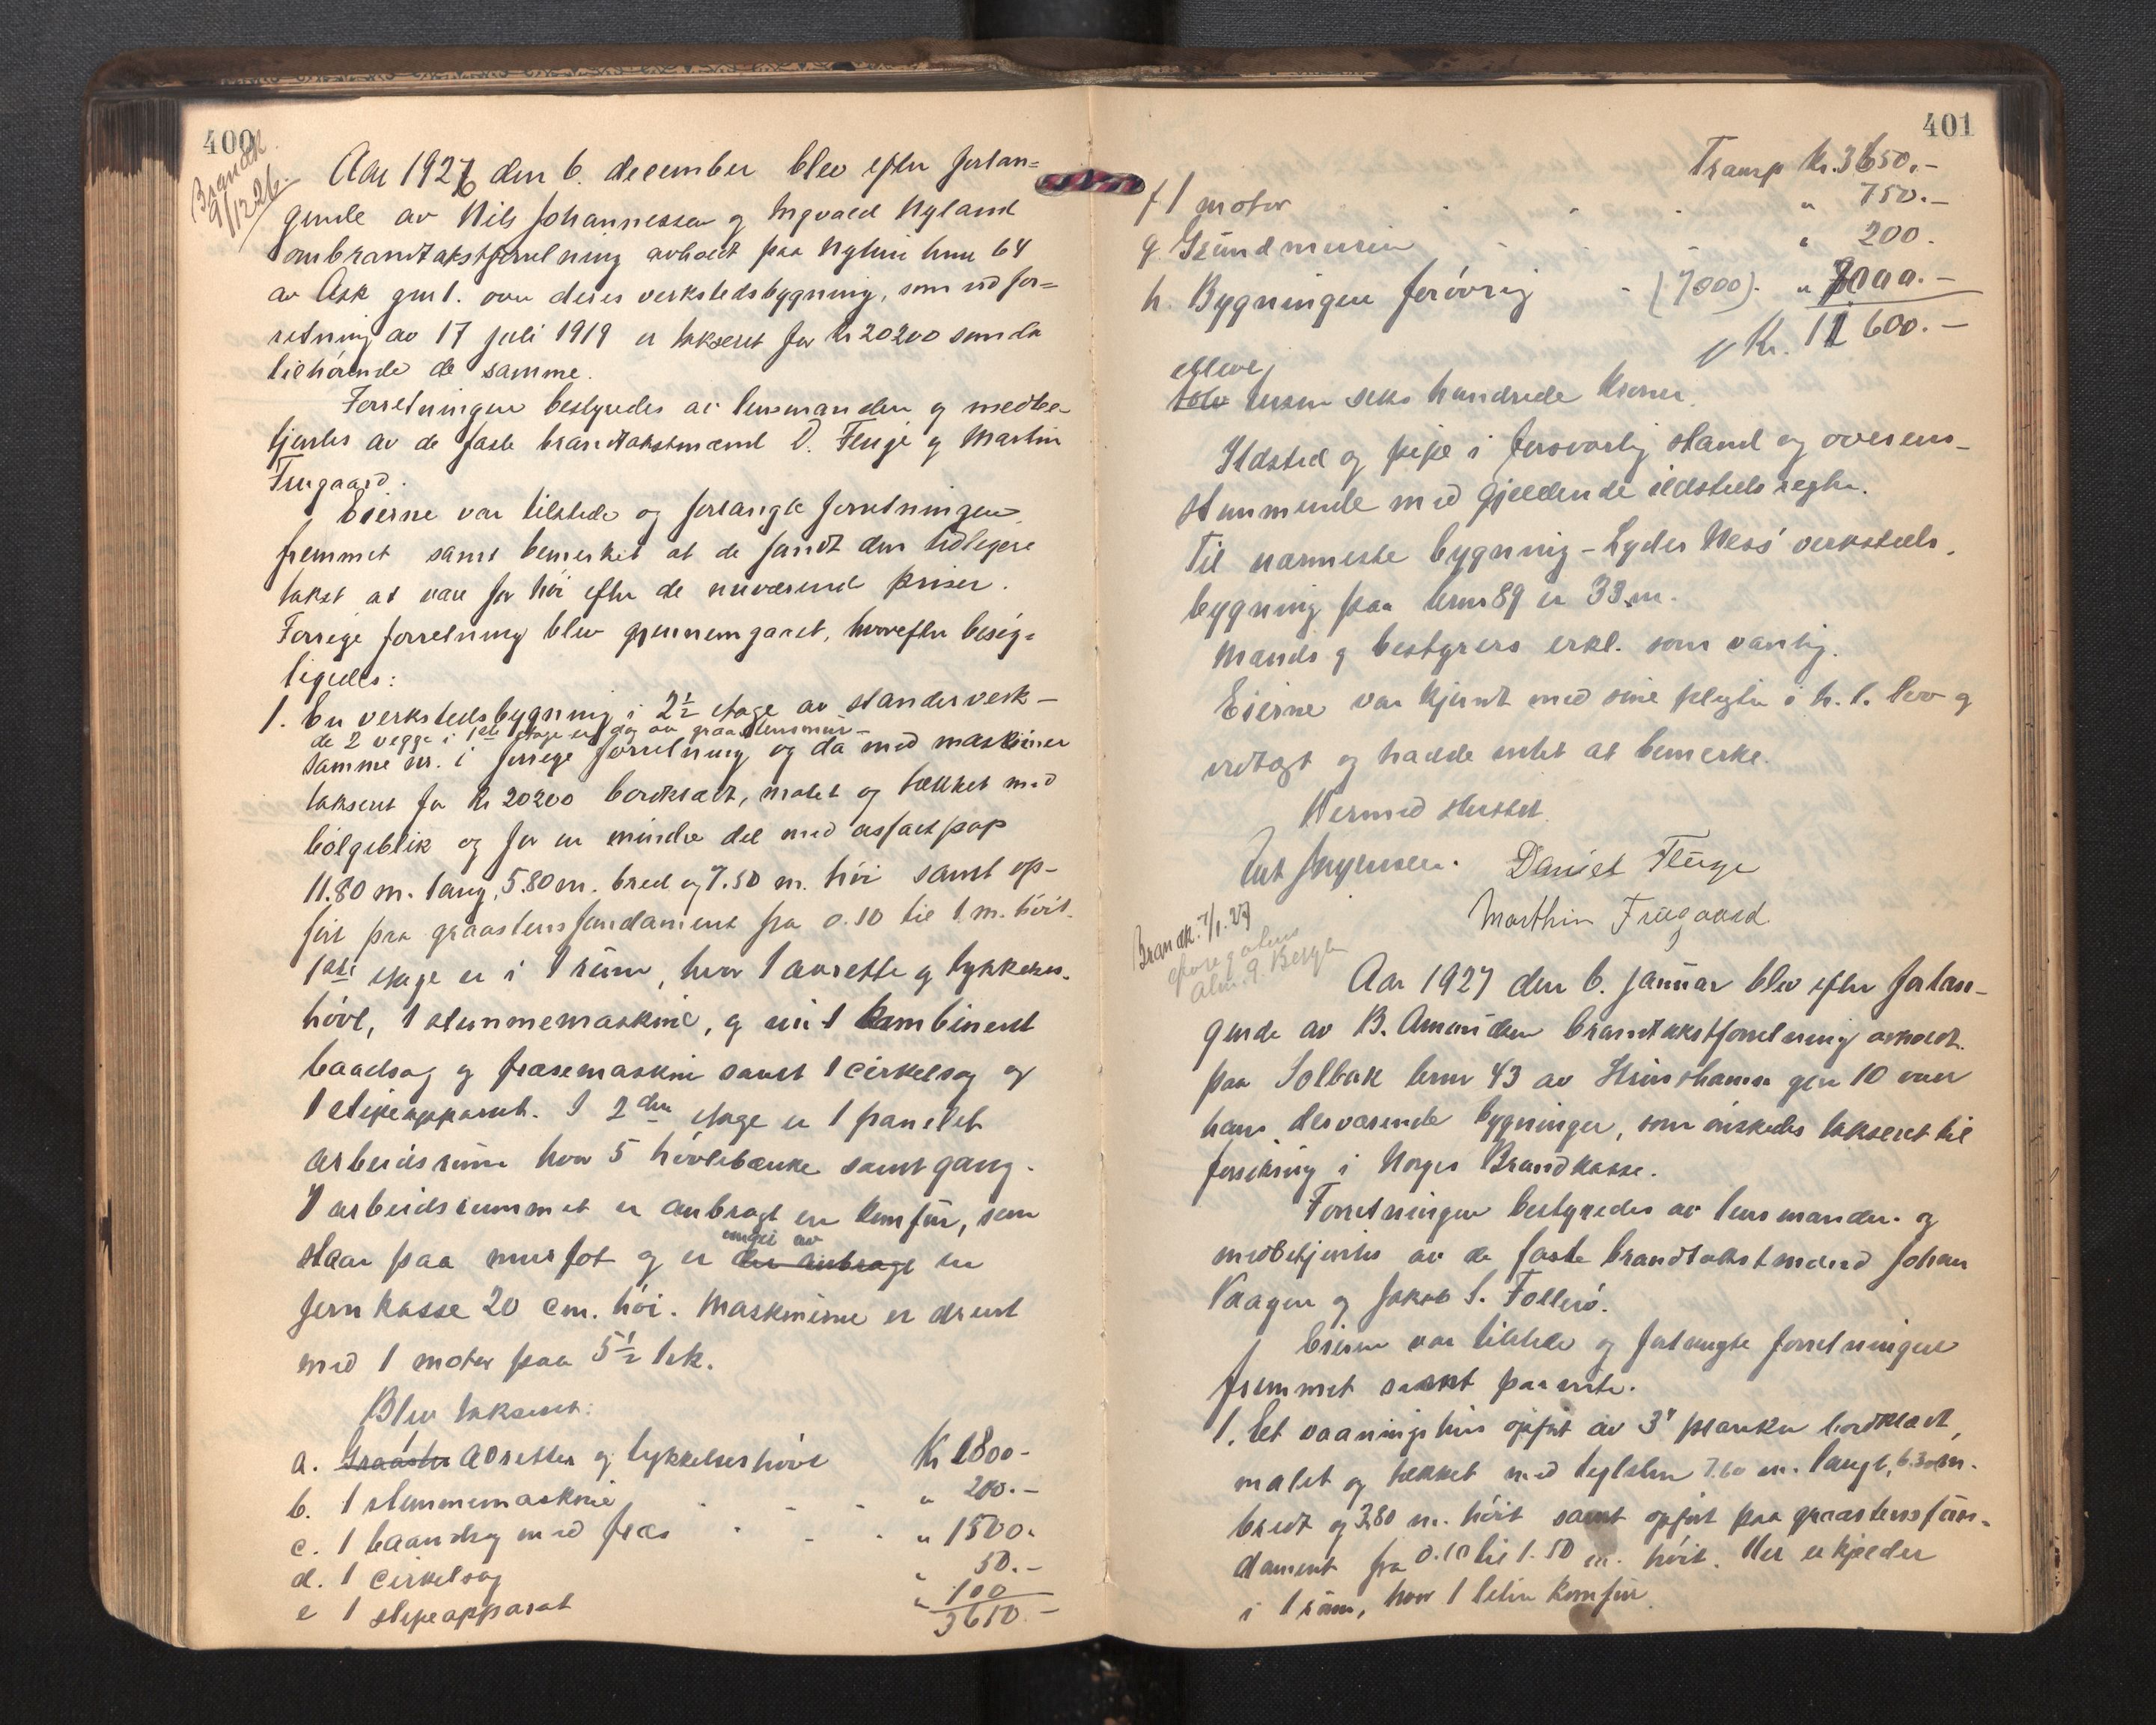 400
Brandk.
9/12 26.
Aar 1926 den 6. december blev efter forlan=
gende av Nils Johannessen og Ingvald Nyland
ombrandtakstforretning avholdt paa bnr 64
av Ask gnr 1. over deres verkstedsbygning, som ved for=
retning av 17 juli 1919 er takseret for kr 20200 som da
tilhørende de samme.
Forretningen bestyredes av lensmanden og medbe-
tjentes av de faste brandtakstmænd D. Fluge og Martin
Frugaard.
Eierne var tilstede og forlangte forretningen
fremmet samt bemerket at de fandt den tidligere
takst at være for høi efter de nuværende priser.
Forrige forretning blev gjennemgaaet, hvorefter besig=
tigedes:
1. En verkstedsbygning i 2½ etage av standerverk -
de 2 vegge i 1ste etage er dog av graastensmur -
samme nr. i forrige forretning og da med maskiner
takseret for kr 20200 bordklædt, malet og tækket med
bølgeblik og for en mindre del med asfaltpap
11.80 m. lang, 5.80 m. bred og 7.50 m. høi samt op-
ført paa graastensfundament fra 0.10 til 1 m. høit.
1ste etage er i 1 rum, hvor 1 avrette og tykkelses-
høvl, 1 stemmemaskine, og 1 kombineret
baandsag og fræsemaskine samt 1 cirkelsag og
1 slipeapparat. I 2den etage er 1 panelet
arbeidsrum hvor 5 høvlebænke samt gang.
I arbeidsrummet er anbragt en komfur, som
staar paa murfot og er der anbragt en
omgit av
jernkasse 20 cm. høi. Maskinerne er drevet
med 1 motor paa 5½ hk.
Blev takseret:
a. Graasten avretter og tykkelseshøvl Kr 1800-
b. 1 stemmemaskine " 200.-
c. 1 baandsag med fræs " 1500.
d. 1 cirkelsag " 50.-
e 1 slipeapparat " 100
3650.-
401
Transp kr. 3650.-
f 1 motor " 750.-
g. Grundmuren " 200.
h. Bygningen forøvrig (7000). " 7000.-
Kr. 11 600.-
elleve
tolv tusen seks hundrede kroner.
Ildsted og pipe i forsvarlig stand og overens-
stemmende med gjeldende ildstedsregler.
Til nærmeste bygning - Lyder Ness' verksteds.
bygning paa bnr 89 er 33 m.
Mænds og bestyrers erkl. som vanlig.
Eierne var kjendt med sine pligter i h. t. lov og
vedtægt og hadde intet at bemerke.
Dermed sluttet.
Daniel Fluge
Marthin Frugaard
Brandk. 7/1. 27
Aar 1927 den 6. januar blev efter forlan-
gende av B. Amundsen brandtakstforretning avholdt
paa Solbak bnr 43 av gnr 10 over
hans derværende bygninger, som ønskedes takseret til
forsikring i Norges Brandkasse.
Forretningen bestyredes av lensmanden og
medbetjentes av de faste brandtakstmænd Johan
Vaagen og Jakob S. Follesø.
Eieren var tilstede og forlangte forretningen
fremmet samt paaviste.
1. Et vaaningshus opført av 3" planker bordklædt,
malet og tækket med teglsten 7.60 m. langt, 6.30 m.
bredt og 3.80 m. høit samt opført paa graastensfun-
dament fra 0.10 til 1.50 m. høit. Der er kjelder
i 1 rum, hvor 1 liten komfur.